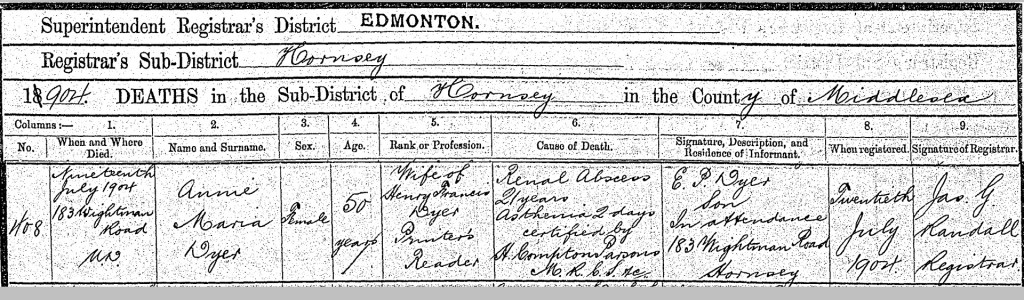 Superintendent Registrar's District EDMONTON.
Registrar's Sub-District Hornsey
1904. DEATHS in the Sub-District of Hornsey in the County of Middlesex
Columns:— 1. 2. 3. 4. 5. 6. 7. 8. 9.
No. When and Where Died. Name and Surname. Sex. Age. Rank or Profession. Cause of Death. Signature, Description, and Residence of Informant. When registered. Signature of Registrar.
408
Nineteenth
July 1904
183 Wightman
Road
Annie
Maria
Dyer
Female
50
years
Wife of
Henry Francis
Dyer
Printer's
Reader
Renal Abscess
2 years
Asthenia 2 days
certified by
H. Compton Parsons
M.R.C.S. &c.
E. P. Dyer
Son
In attendance
183 Wightman Road
Hornsey
Twentieth
July
1904.
Jas. G
Randall
Registrar.